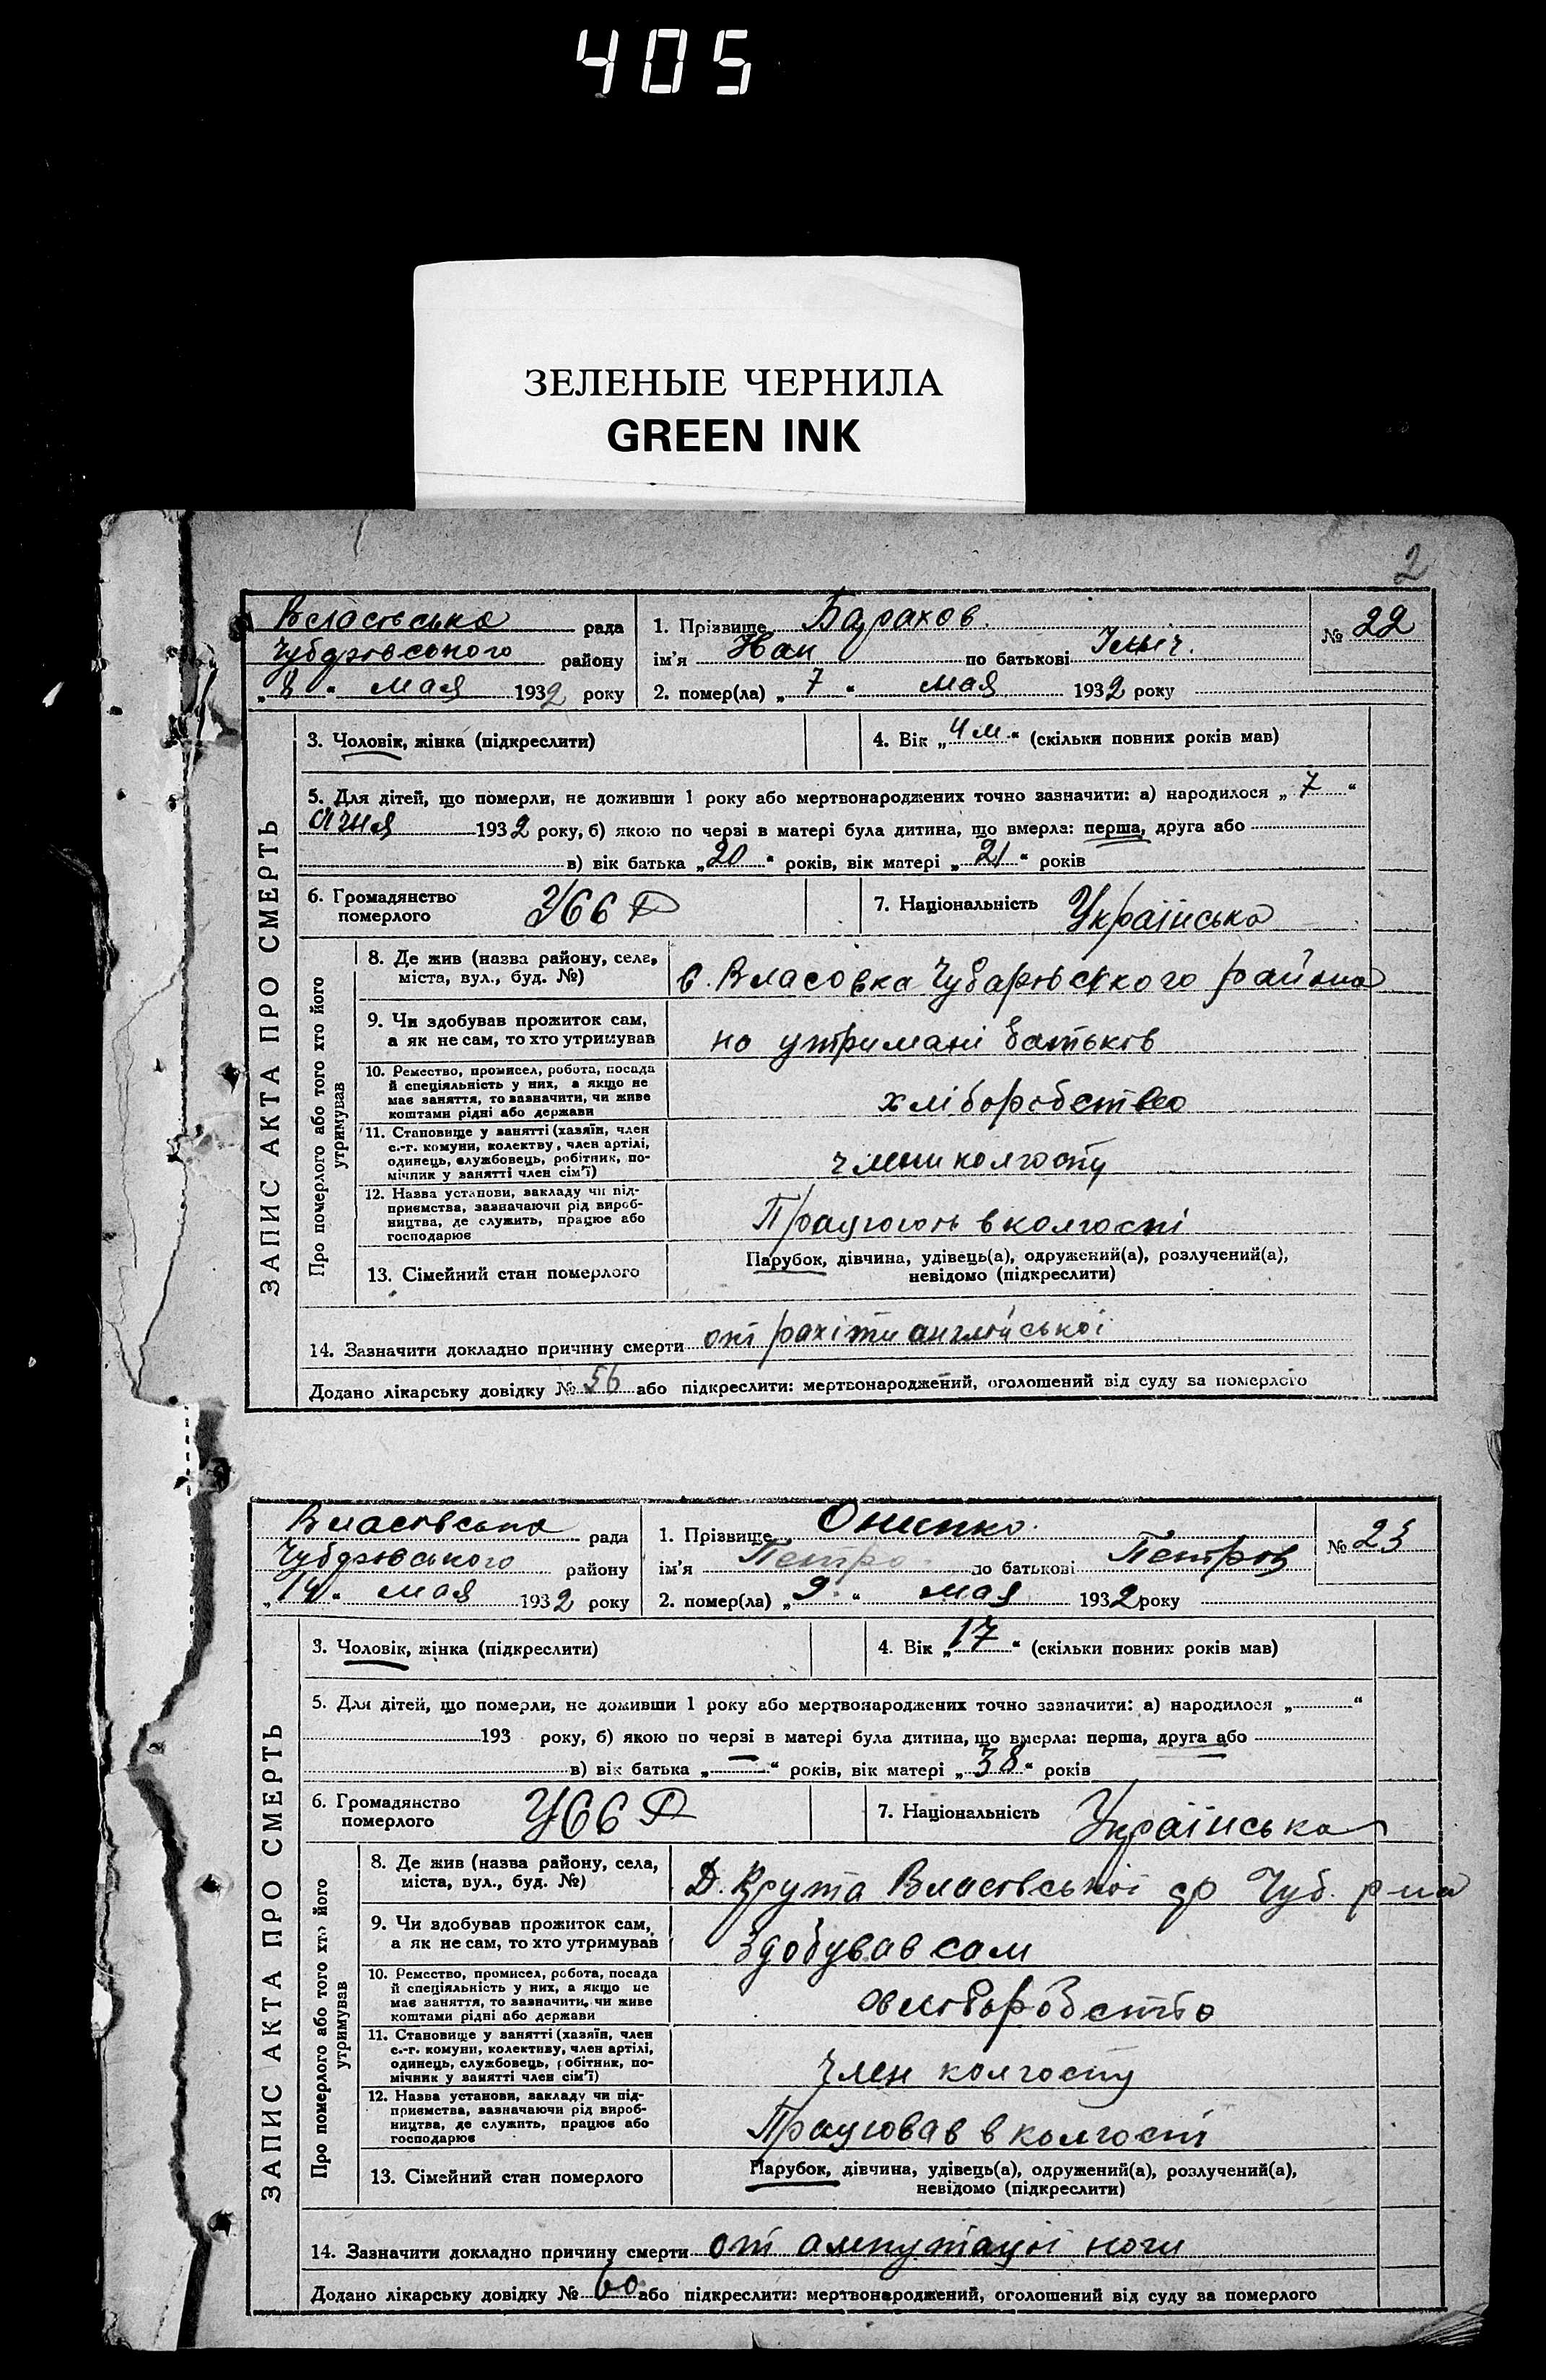 405
ЗЕЛЕНЫЕ ЧЕРНИЛА
GREEN INK
2
Власівська рада
Чубарівського району
„8“ мая 1932 року
1. Прізвище
ім'я Иван по батькові Ільіч.
2. помер(ла) „7“ мая 1932 року
№ 22
ЗАПИС АКТА ПРО СМЕРТЬ
3. Чоловік, жінка (підкреслити)
4. Вік „4 м.“ (скільки повних років мав)
5. Для дітей, що померли, не доживши 1 року або мертвонароджених точно зазначити: а) народилося „7“
1932 року, б) якою по черзі в матері була дитина, що вмерла: перша, друга або
в) вік батька „20“ років, вік матері „21“ років
6. Громадянство
померлого
УССР
7. Національність Українська
Про померлого або того хто його
утримував
8. Де жив (назва району, села,
міста, вул., буд. №)
с. Власовка Чубарівського района
9. Чи здобував прожиток сам,
а як не сам, то хто утримував
на утримані батьків
10. Ремество, промисел, робота, посада
й спеціяльність у них, а якщо не
має заняття, то зазначити, чи живе
коштами рідні або держави
хліборобство
11. Становище у занятті (хазяїн, член
с.-г. комуни, колективу, член артілі,
одинець, службовець, робітник, по-
мічник у занятті член сім'ї)
члени колгоспу
12. Назва установи, закладу чи під-
приємства, зазначаючи рід вироб-
ництва, де служить, працює або
господарює
Працюють в колгоспі
13. Сімейний стан померлого
Парубок, дівчина, удівець(а), одружений(а), розлучений(а),
невідомо (підкреслити)
14. Зазначити докладно причину смерти от рахіти англійської
Додано лікарську довідку № 56 або підкреслити: мертвонароджений, оголошений від суду за померлого
Власівська рада
Чубарівського району
„14“ мая 1932 року
1. Прізвище Онипко.
ім'я Петро по батькові Петров
2. помер(ла) „9“ мая 1932 року
№ 23
ЗАПИС АКТА ПРО СМЕРТЬ
3. Чоловік, жінка (підкреслити)
4. Вік „17“ (скільки повних років мав)
5. Для дітей, що померли, не доживши 1 року або мертвонароджених точно зазначити: а) народилося „ “
193 року, б) якою по черзі в матері була дитина, що вмерла: перша, друга або
в) вік батька „—“ років, вік матері „38“ років
6. Громадянство
померлого
УССР
7. Національність Українська
Про померлого або того хто його
утримував
8. Де жив (назва району, села,
міста, вул., буд. №)
Д. Крута Власівської с/р Чуб. р-на
9. Чи здобував прожиток сам,
а як не сам, то хто утримував
Здобував сам
10. Ремество, промисел, робота, посада
й спеціяльність у них, а якщо не
має заняття, то зазначити, чи живе
коштами рідні або держави
хліборобство
11. Становище у занятті (хазяїн, член
с.-г. комуни, колективу, член артілі,
одинець, службовець, робітник, по-
мічник у занятті член сім'ї)
Член колгоспу
12. Назва установи, закладу чи під-
приємства, зазначаючи рід вироб-
ництва, де служить, працює або
господарює
Працював в колгоспі
13. Сімейний стан померлого
Парубок, дівчина, удівець(а), одружений(а), розлучений(а),
невідомо (підкреслити)
14. Зазначити докладно причину смерти от ампутації ноги
Додано лікарську довідку № 60 або підкреслити: мертвонароджений, оголошений від суду за померлого